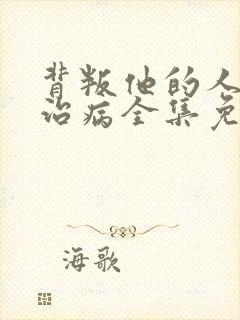 背叛他的人
治病全集免
海歌